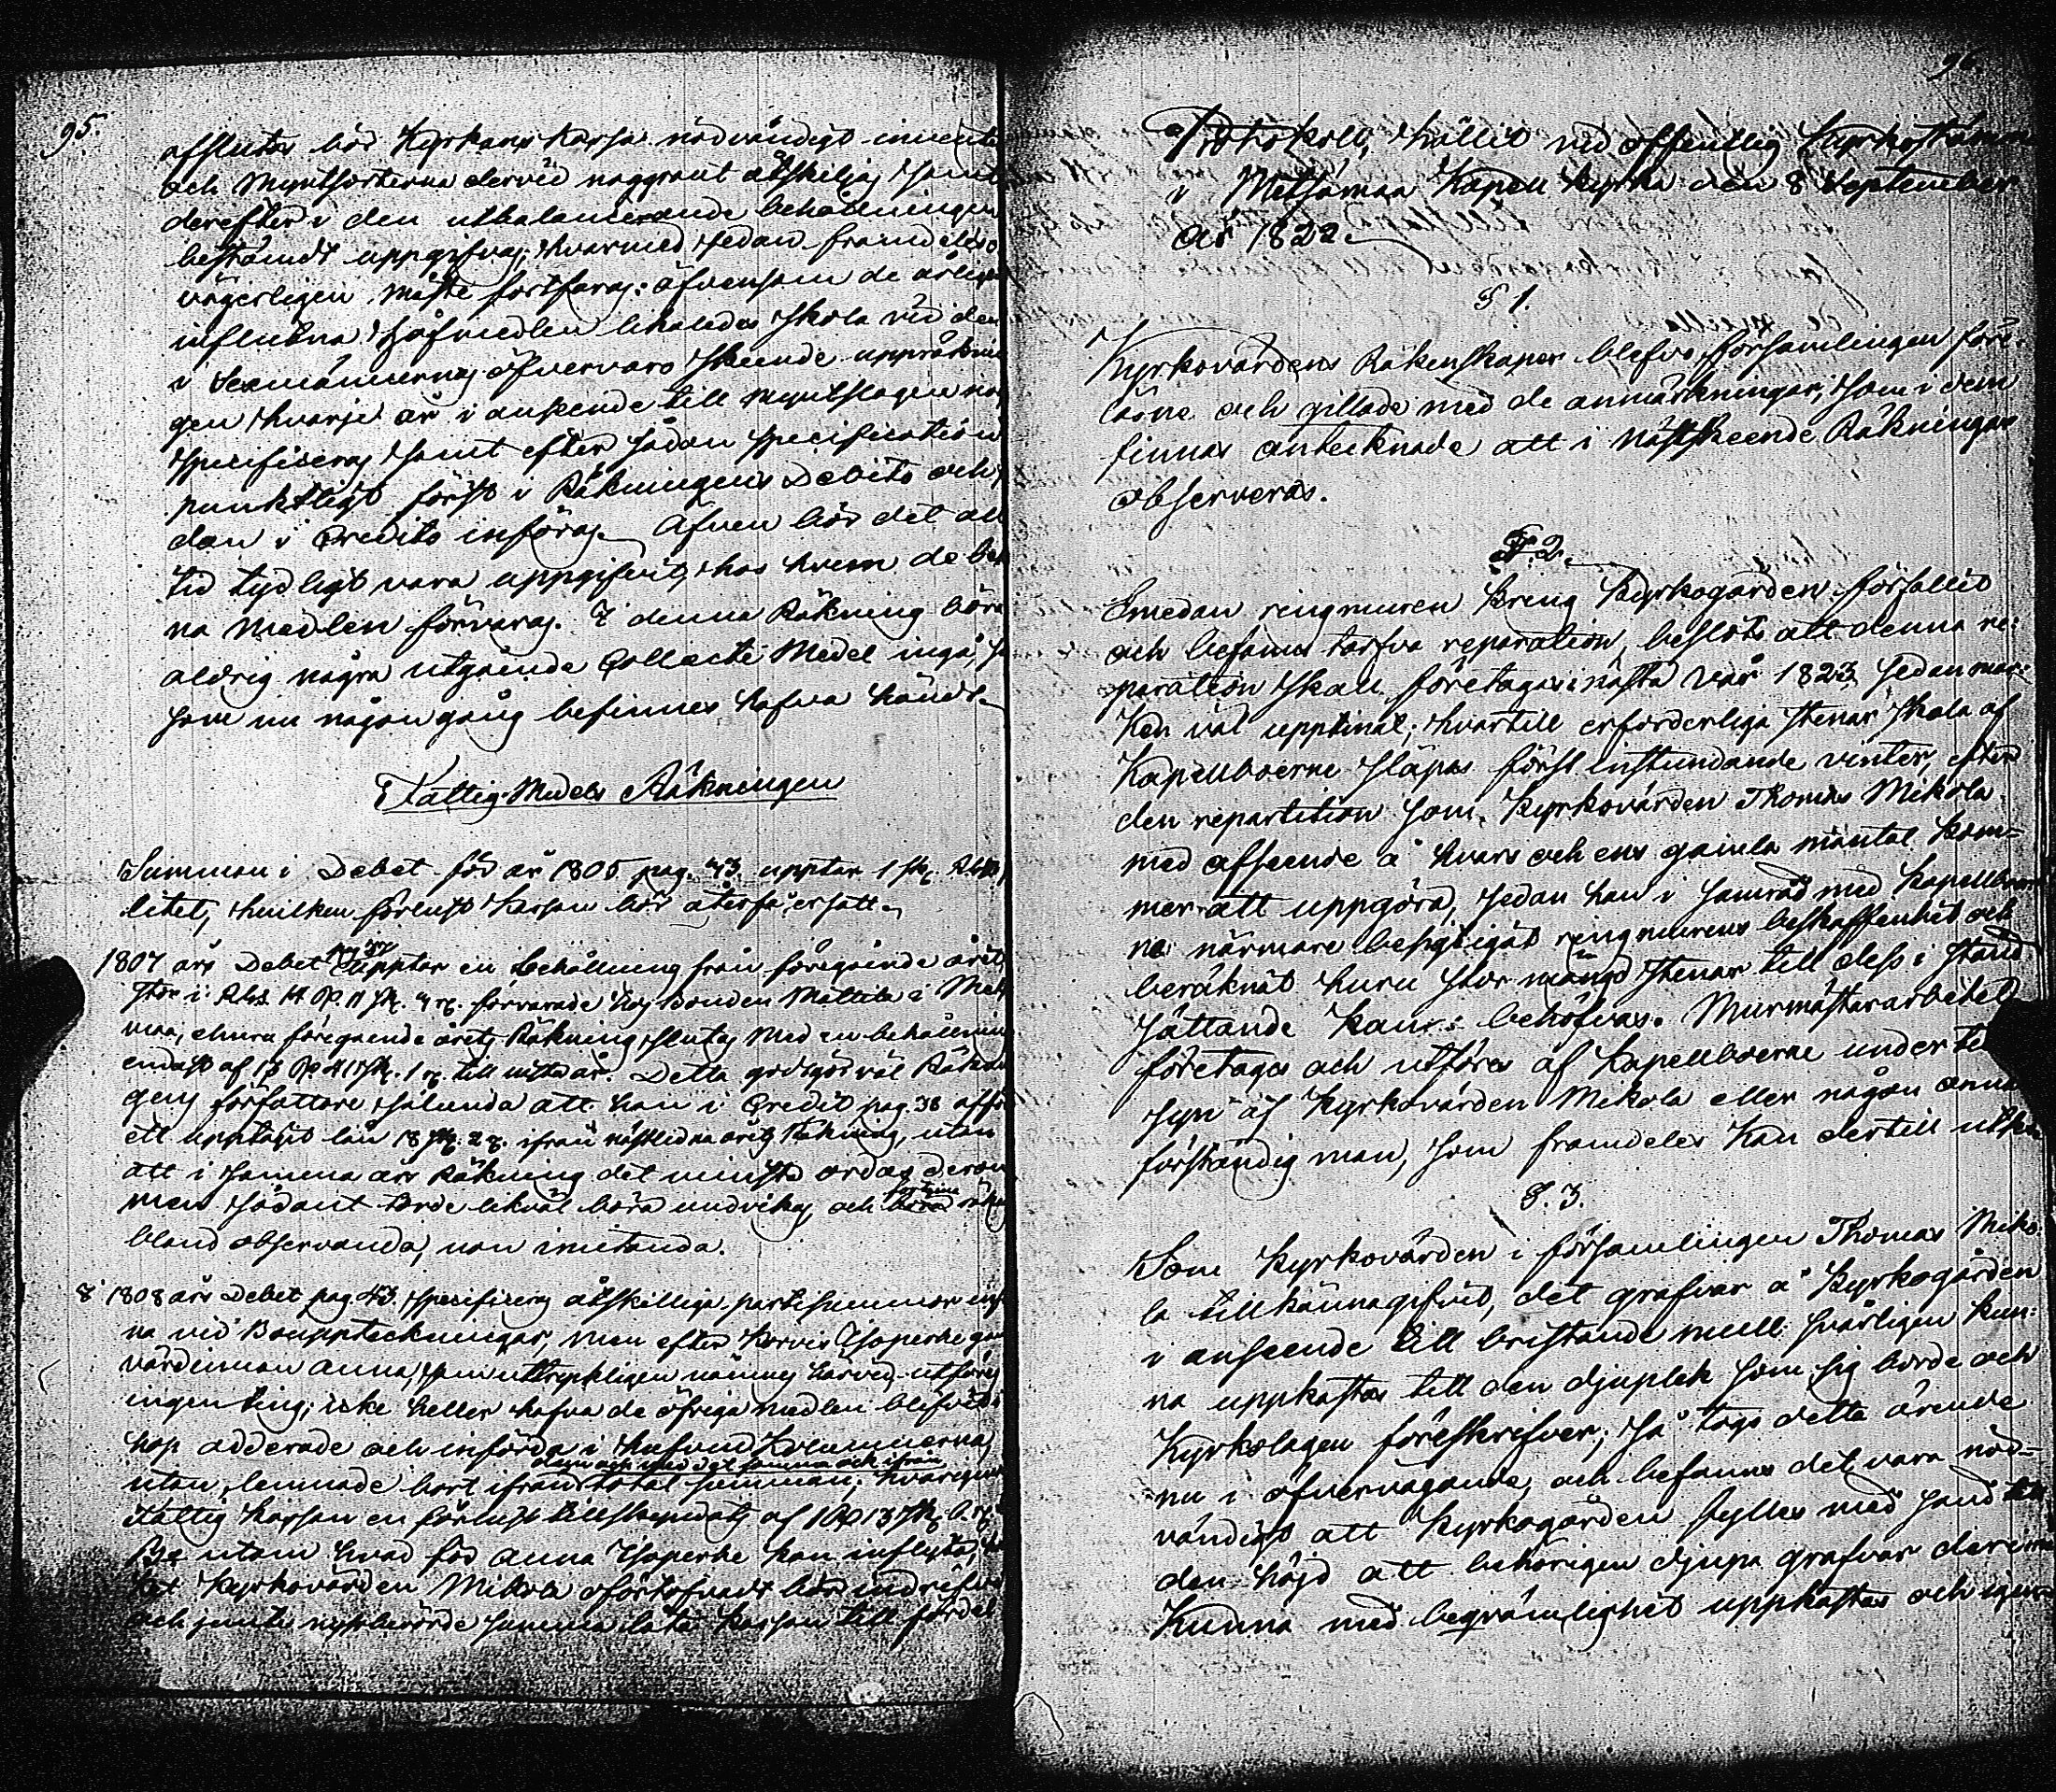 95.
afslutas bör Kyrkans Kassa nödvändigt invente
och Myntsorterna dervid noggrant åtskiljas samt
derefter i den utbalancerande behållningen
bestämdt uppgifvas; hvarmed sedan framdeles o
vägerligen måste fortfaras: äfvensom de årligen
influtna Håfmedlen likaledes skola vid den
i Sexmännernas öfvervaro skeende uppräknin
gen hvarje år i anseende till Myntslagen
specificeras samt efter sådan specification
punktligt först i Räkningens Debito och
dan i Credito införas. Äfven bör det all
tid tydligt vara uppgifvit, hos hvem de
na Medlen förvaras. I denna Räkning böra
aldrig några utgående Collecte Medel ingå,
som nu någon gång befinnes hafva händt.
Fattig-Medels Räkningen
Summan i Debet för år 1805 pag. 43. upptar 1 sk.
litet, hvilken förlust Kassan bör återfå ersatt.
1807 års Debet upptar en behållning från föregående året
stor i förvarade hos Bonden Mattila i
maa, ehuru föregående årets Räkning slutas med en behållning
endast af till Detta godtgör väl
gens författare sålunda att han i Credit pag. 38
ett upptagit lån 18 sk. 2 r. ifrån nästledna årets Räkning, utan
att i samma års Räkning det minsta ordas derom
men sådant torde likväl böra undvikas och
bland observanda, non imitanda.
8 1808 års Debet pag. 43. specificeras åtskilliga partisummor
na vid Bouppteckningar, men efter
värdinnan Anna, som uttryckligen nämnes härvid, utföres
ingenting; icke heller hafva de öfriga medlen blifvit
hop adderade och införda i hufvud Kolumnerna,
utan lemnade bort ifrån total summan; hvarigenom
Fattig Kassan en förlust tillskyndats af
utom hvad för Anna kan inflyta,
Kyrkovärden Mikola oförtöfvadt bör indrifva
och jemte nyssberörde summa låta Kassan till fördel
96.
Protokoll, hållit vid offentlig Kyrkostämma
i Metsämaa Kapell Kyrka den 8 September
år 1822.
§ 1.
Kyrkovärdens Räkenskaper blefvo församlingen före-
läsne och gillade med de anmärkningar, som i dem
finnas antecknade att i nästskeende Räkningar
observeras.
§. 2.
Emedan ringmuren kring Kyrkogården förfallit
och befanns tarfva reparation, beslöts att denna re:
paration skall företagas nästa vår 1823 sedan mar:
ken väl upptinat; hvartill erforderliga stenar skola af
Kapellboerne släpas först instundande vinter, efter
den repartition som Kyrkovärden Thomas Mikola
med afseende å hvars och ens gamla mantal kom-
mer att uppgöra, sedan han i samråd med Kapellboer
ne närmare besigtigat ringmurens beskaffenhet och
beräknat huru stor mängd stenar till dess i stånd
sättande kan behöfvas. Murmästararbetet
företages och utföres af Kapellboerne under
syn af Kyrkovärden Mikola eller någon annan
förståndig man, som framdeles kan dertill
§. 3.
Som Kyrkovärden i församlingen Thomas Miko
la tillkännagifvit, det grafvar å Kyrkogården
i anseende till bristande mull svårligen kun:
na uppkastas till den djuplek som sig borde och
Kyrkolagen föreskrifver; så togs detta ärende
nu i öfvervägande, och befanns det vara nöd-
vändigt att Kyrkogården fylles med sand till
den höjd att behörigen djupa grafvar
kunna med beqvämlighet uppkastas och